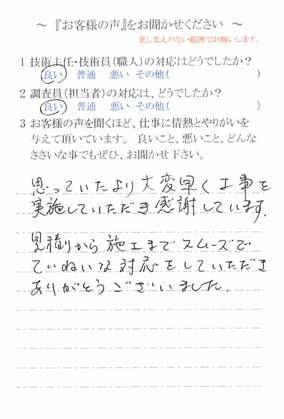 ～『お客様の声』をお聞かせください ～
差し支えのない範囲でお願いします。
1 技術主任・技術員（職人）の対応はどうでしたか？
良い 普通 悪い その他( )
2 調査員（担当者）の対応は、どうでしたか？
良い 普通 悪い その他( )
3 お客様の声を聞くほど、仕事に情熱とやりがいを
与えて頂いています。 良いこと、悪いこと、どんな
ささいな事でもぜひ、お聞かせ下さい。
思っていたより大変早く工事を
実施していただき感謝しています。
見積りから施工までスムーズで
ていねいな対応をしていただき
ありがとうございました。